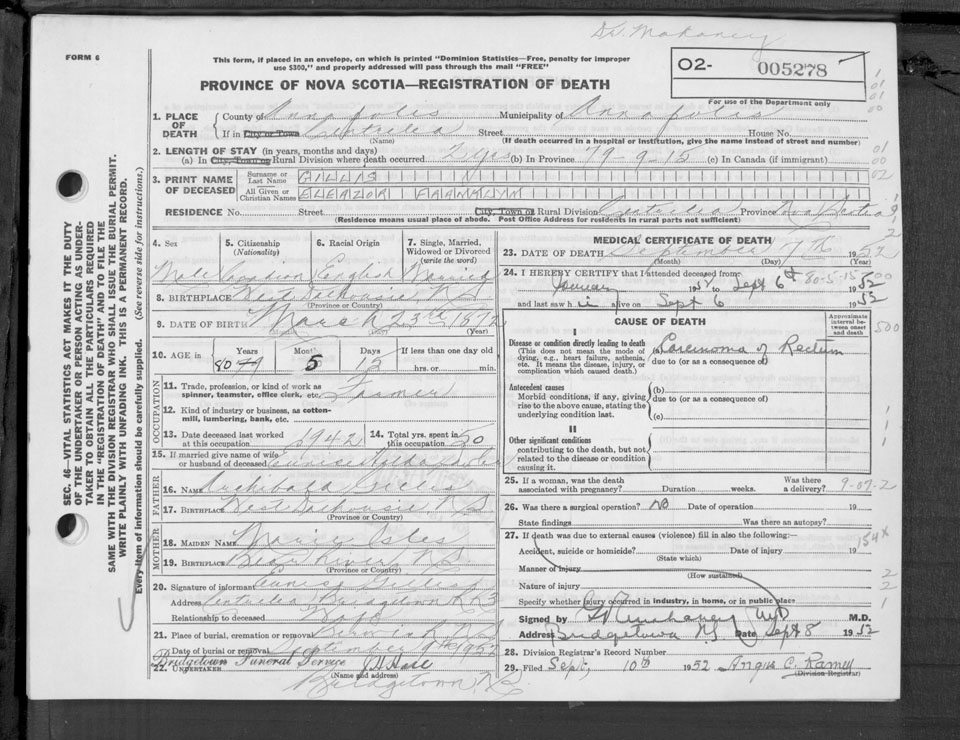 Dr. Mahaney
FORM 6
This form, if placed in an envelope, on which is printed "Dominion Statistics—Free, penalty for improper
use $300," and properly addressed will pass through the mail "FREE"
O2- 005278
For use of the Department only
PROVINCE OF NOVA SCOTIA—REGISTRATION OF DEATH
1. PLACE OF DEATH
County of Annapolis Municipality of Annapolis
If in City or Town Centrelea Street House No.
(Name) (If death occurred in a hospital or institution, give the name instead of street and number)
2. LENGTH OF STAY (in years, months and days)
(a) In City, Town or Rural Division where death occurred 2 yrs (b) In Province 79-9-15 (c) In Canada (if immigrant)
3. PRINT NAME OF DECEASED
Surname or Last Name GILLIS
All Given or Christian Names ELEAZOR
RESIDENCE No. Street City, Town or Rural Division Centrelea Province Nova Scotia
(Residence means usual place of abode. Post Office Address for residents in rural parts not sufficient)
4. Sex Male
5. Citizenship (Nationality) Canadian
6. Racial Origin English
7. Single, Married, Widowed or Divorced (write the word) Married
8. BIRTHPLACE West Dalhousie, N.S.
(Province or Country)
9. DATE OF BIRTH March 23rd 1872
(Year)
10. AGE in Years 80 79 Months 5 Days 15 If less than one day old hrs. or min.
OCCUPATION
11. Trade, profession or kind of work as spinner, teamster, office clerk, etc. Farmer
12. Kind of industry or business, as cotton-mill, lumbering, bank, etc.
13. Date deceased last worked at this occupation 1942
14. Total yrs. spent in this occupation 50
15. If married give name of wife or husband of deceased Eunice
FATHER
16. NAME Archibald Gillis
17. BIRTHPLACE West Dalhousie N.S.
(Province or Country)
MOTHER
18. MAIDEN NAME Isles
19. BIRTHPLACE Bear River N.S.
(Province or Country)
20. Signature of informant Eunice Gillis
Address Centrelea Bridgetown R R 3
Relationship to deceased
21. Place of burial, cremation or removal
Date of burial or removal September 9th 1952
22. UNDERTAKER Bridgetown Funeral Service
(Name and address)
Bridgetown N.S.
MEDICAL CERTIFICATE OF DEATH
23. DATE OF DEATH September 7th 1952
(Month) (Day) (Year)
24. I HEREBY CERTIFY that I attended deceased from:
January 195 to Sept 6th 1952
80-5-15
and last saw h i alive on Sept 6 1952
CAUSE OF DEATH
Approximate interval between onset and death
I
Disease or condition directly leading to death
(This does not mean the mode of dying, e.g., heart failure, asthenia, etc. It means the disease, injury, or complication which caused death.)
(a) Carcinoma of Rectum
due to (or as a consequence of)
Antecedent causes
Morbid conditions, if any, giving rise to the above cause, stating the underlying condition last.
(b)
due to (or as a consequence of)
(c)
II
Other significant conditions
contributing to the death, but not related to the disease or condition causing it.
25. If a woman, was the death associated with pregnancy? Duration weeks. Was there a delivery?
9-07-2
26. Was there a surgical operation? NO Date of operation 19
State findings Was there an autopsy?
27. If death was due to external causes (violence) fill in also the following:—
Accident, suicide or homicide? Date of injury 19
154X
(State which)
Manner of injury
(How sustained)
Nature of injury
Specify whether injury occurred in industry, in home, or in public place
Signed by M.D.
Address Bridgetown N.S. Date Sept 8 1952
28. Division Registrar's Record Number
29. Filed Sept. 10th 1952 Angus C. Ramey
(Division Registrar)
SEC. 46—VITAL STATISTICS ACT MAKES IT THE DUTY
OF THE UNDERTAKER OR PERSON ACTING AS UNDER-
TAKER TO OBTAIN ALL THE PARTICULARS REQUIRED
IN THE "REGISTRATION OF DEATH" AND TO FILE THE
SAME WITH THE DIVISION REGISTRAR WHO SHALL ISSUE THE BURIAL PERMIT.
WRITE PLAINLY WITH UNFADING INK. THIS IS A PERMANENT RECORD.
Every item of information should be carefully supplied. (See reverse side for instructions.)